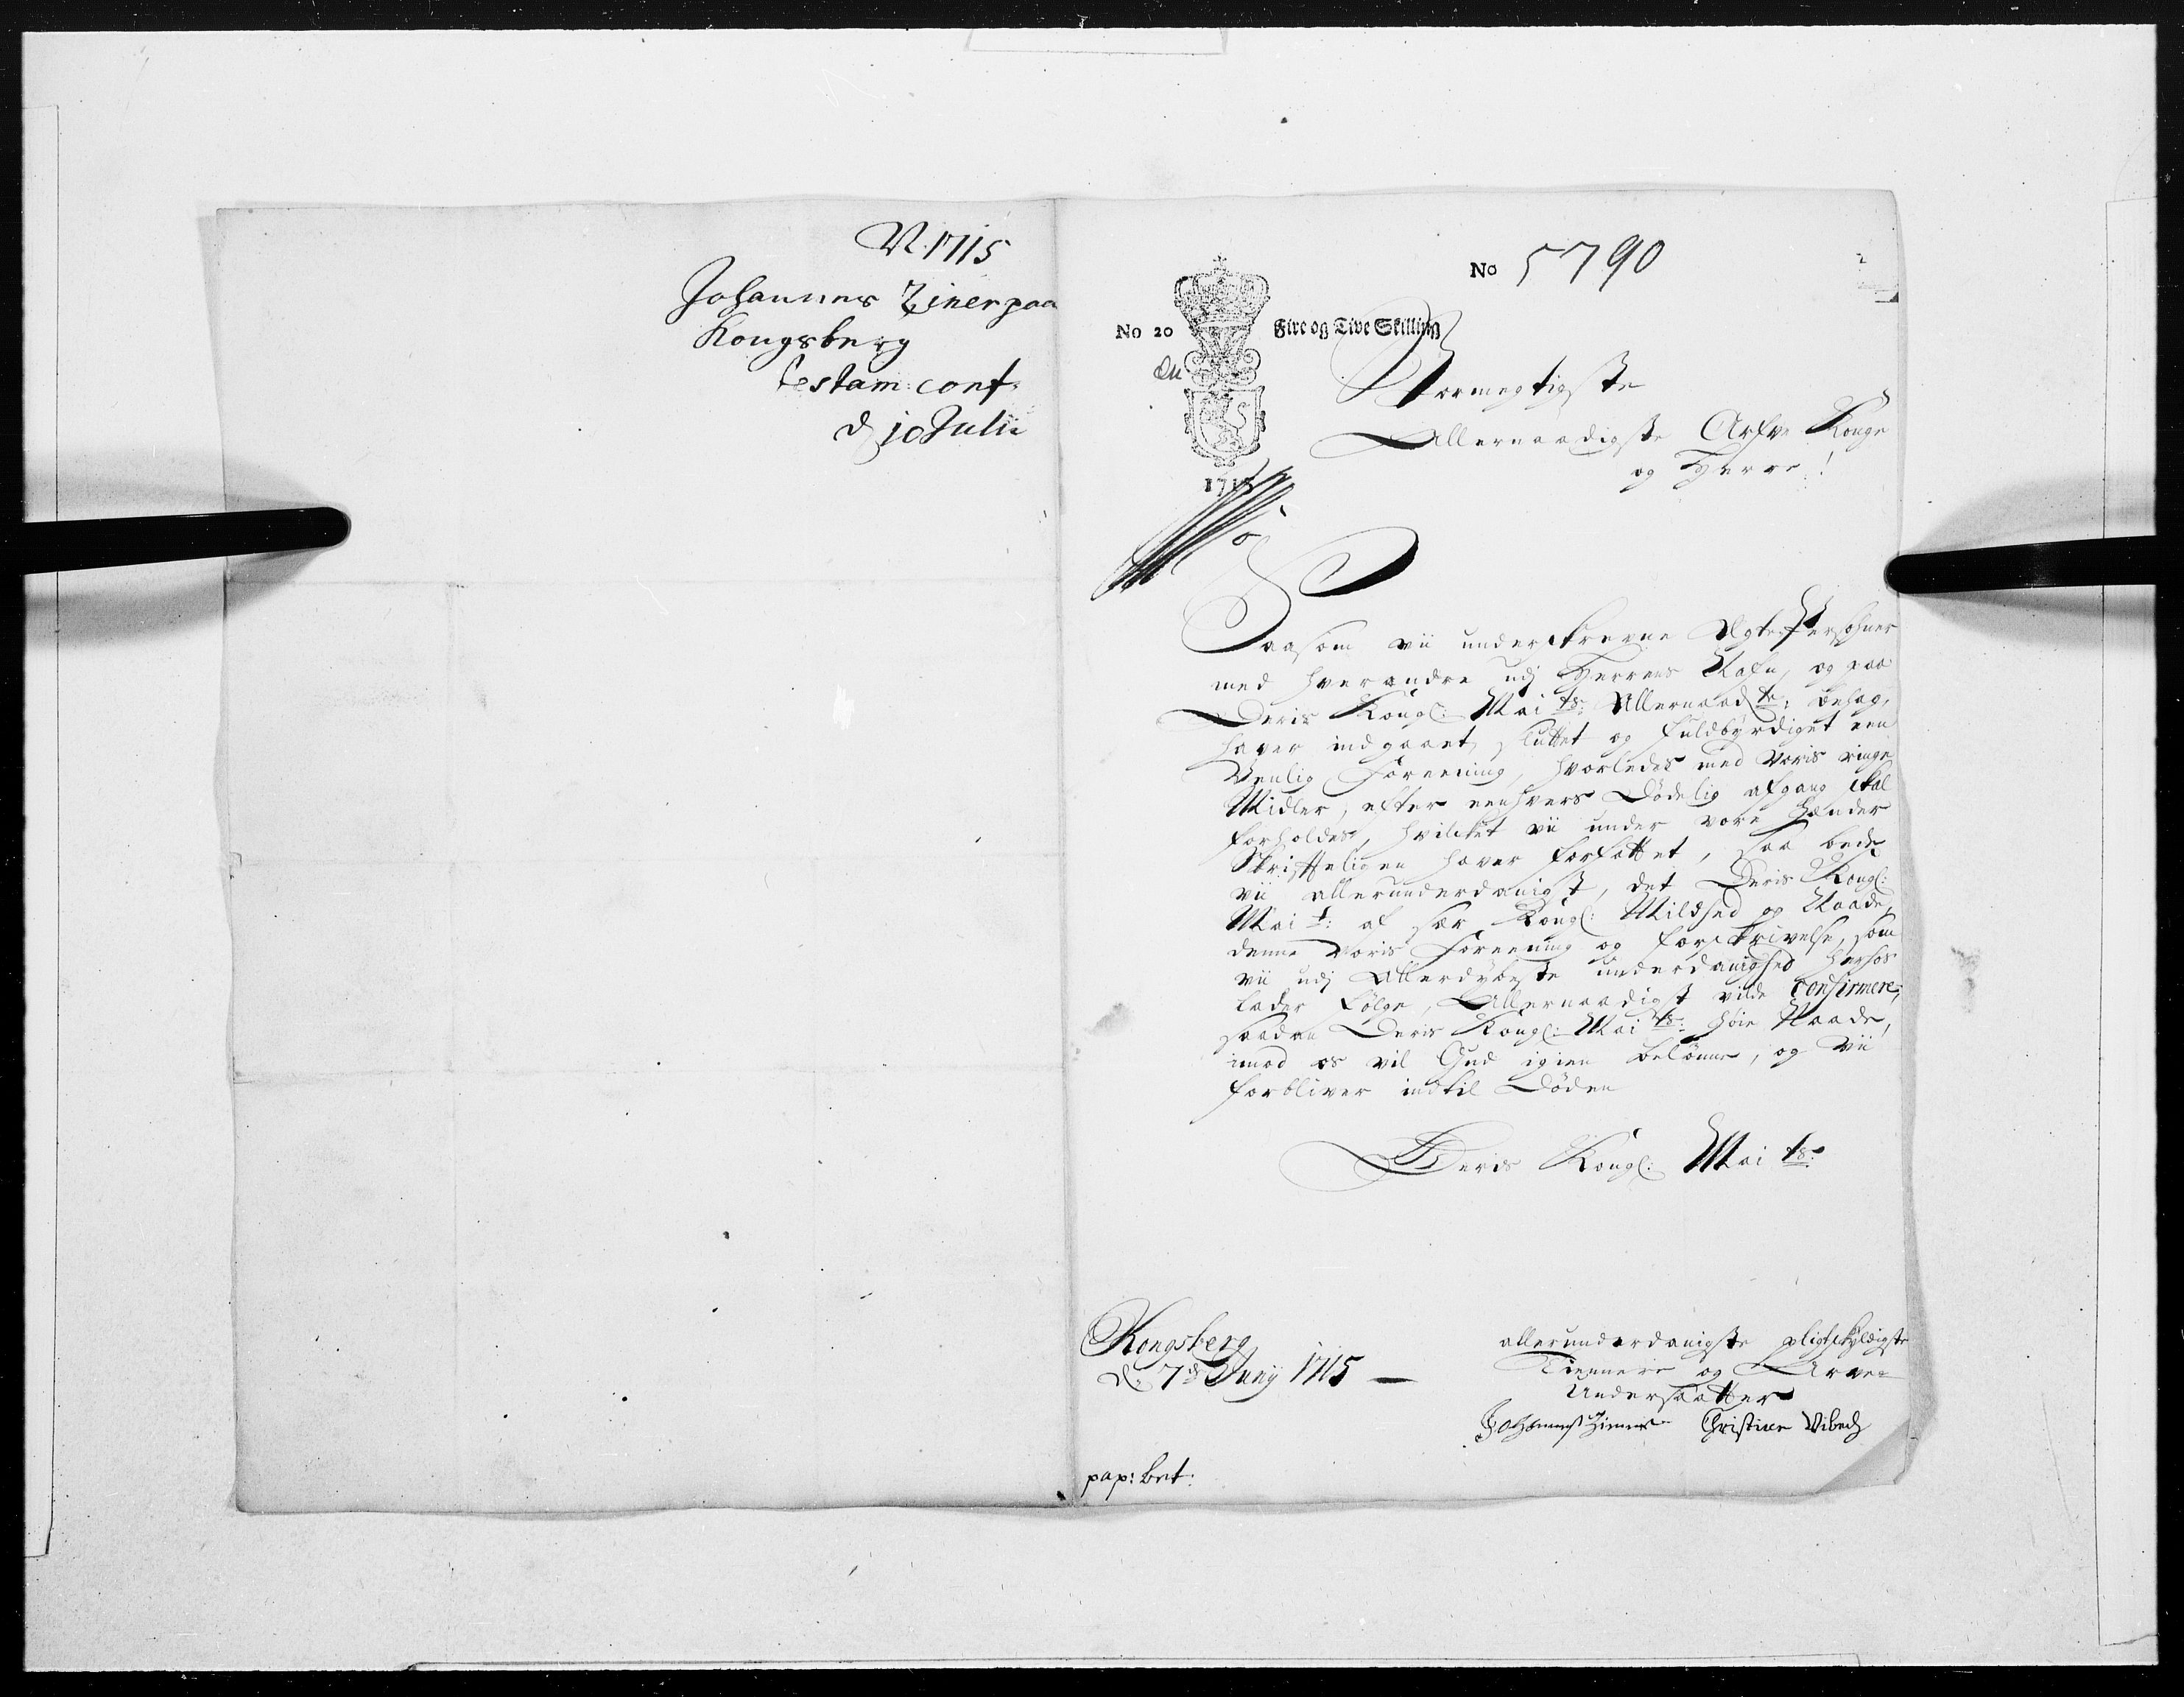 N. 1715
Johannes Ziner paa
Kongsberg
testam: conf:
d 10 Julii
No 5790
No 20 Fire og Tive Skilling
1715
Stormegtigste
Allernaadigste Arfve Konge
og Herre!
Saasom vii underskrevne Ægte Persohner
med hverandre udj Herrens Nafn, og paa
Deris Kongl: Mai ts: Allernaad te: behag,
haver indgaaet, sluttet og fuldbyrdiget een
Venlig Foreening, hvorledes med Voris ringe
Midler, efter eenhvers Dødelig afgang skal
forholdes, hvilket vii under vore Hænder
Skriftligen haver forfattet, saa bede
vii allerunderdanigst, det Deris Kongl:
Mai t: af sær Kongl: Mildhed og Naade,
denne Voris Foreening og forskrivelse, som
vii udj Allerdybeste underdanighed herhos
lader følge, Allernaadigst vilde Confirmere;
saadan Deris Kongl: Mai ts: høie Naade,
imod os vil Gud igien belønne, og Vii
forbliver indtil Døden
Deris Kongl: Mai ts:
Kongsberg
d: 7 de Junij 1715
allerunderdanigste pligtskyldigste
Tiennere og Arve=
Undersaatter
Johannes Ziener Christine Vibech
pap: bet: